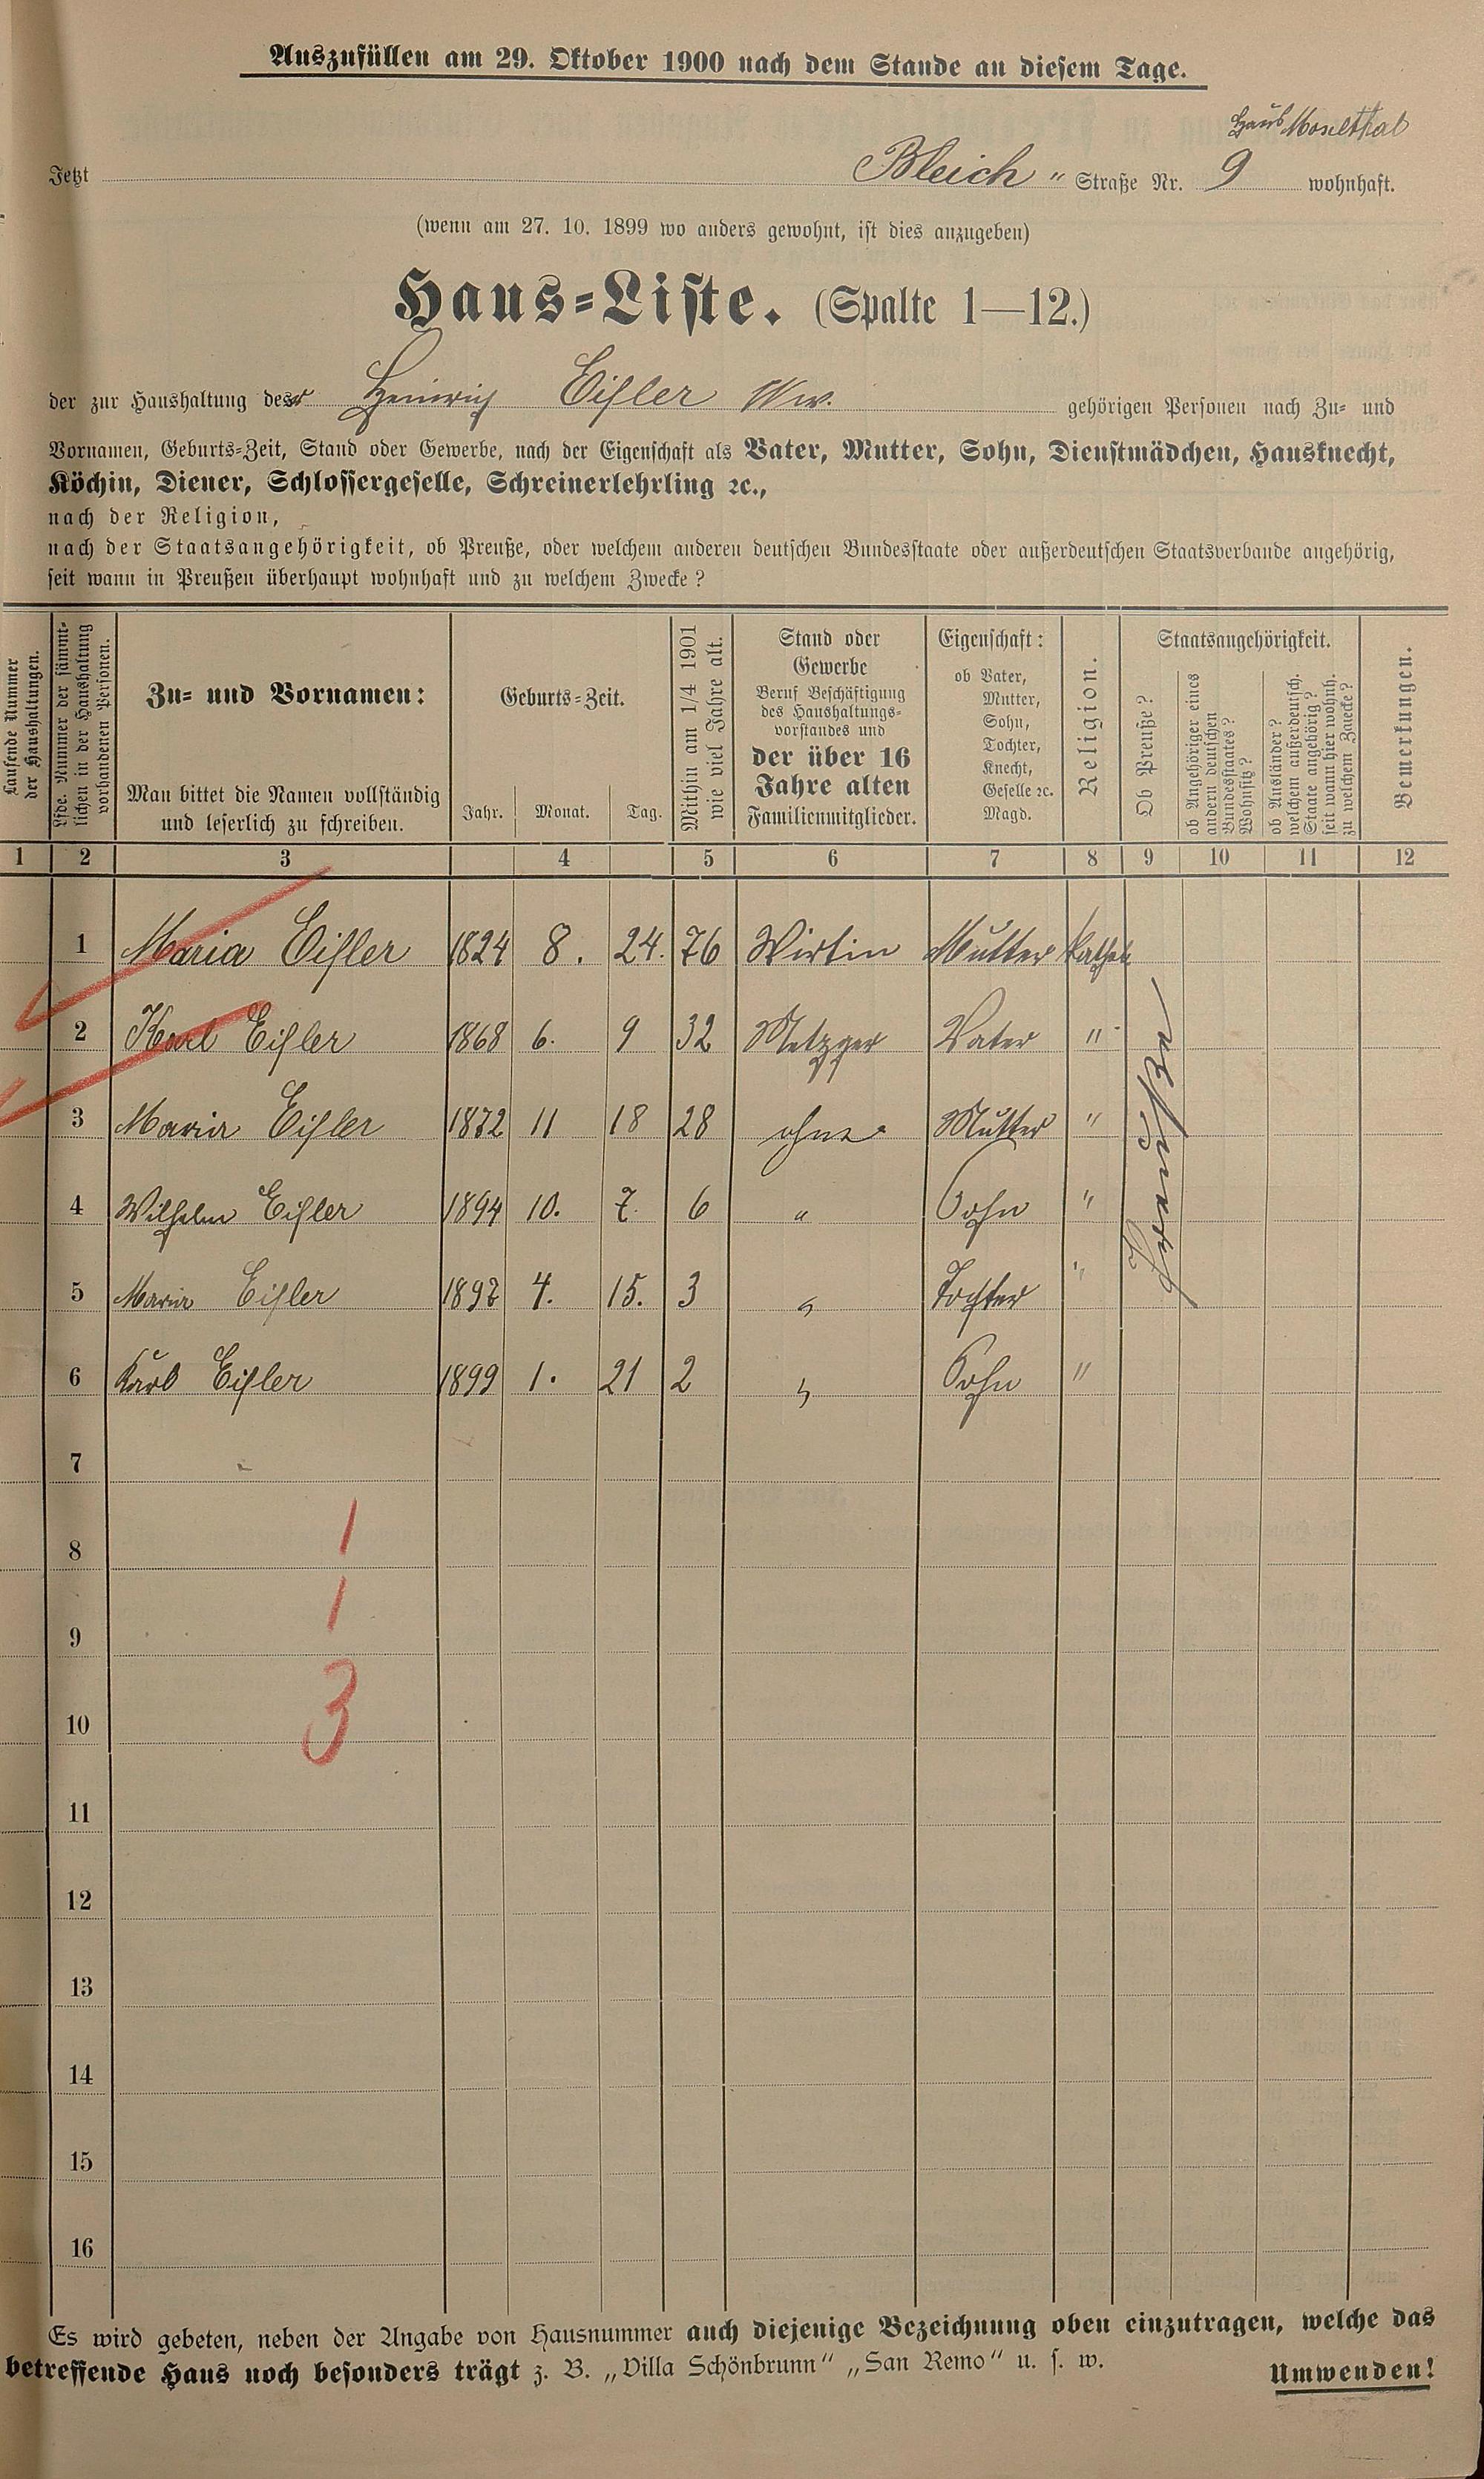 Auszufüllen am 29. Oktober 1900 nach dem Stande an diesem Tage.
Haus Moselthal
Jetzt Bleich " Straße Nr. 9 wohnhaft.
(wenn am 27. 10. 1899 wo anders gewohnt, ist dies anzugeben)
Haus=Liste. (Spalte 1—12.)
der zur Haushaltung der Heinrich Eifler Ww. gehörigen Personen nach Zu= und
Vornamen, Geburts=Zeit, Stand oder Gewerbe, nach der Eigenschaft als Vater, Mutter, Sohn, Dienstmädchen, Hausknecht,
Köchin, Diener, Schlossergeselle, Schreinerlehrling ꝛc.,
nach der Religion,
nach der Staatsangehörigkeit, ob Preuße, oder welchem anderen deutschen Bundesstaate oder außerdeutschen Staatsverbande angehörig,
seit wann in Preußen überhaupt wohnhaft und zu welchem Zwecke?
Laufende Nummer
der Haushaltungen.
Lfde. Nummer der sämmt=
lichen in der Haushaltung
vorhandenen Personen.
Zu= und Vornamen:
Man bittet die Namen vollständig
und leserlich zu schreiben.
Geburts=Zeit.
Jahr. Monat. Tag.
Mithin am 1/4 1901
wie viel Jahre alt.
Stand oder
Gewerbe
Beruf Beschäftigung
des Haushaltungs=
vorstandes und
der über 16
Jahre alten
Familienmitglieder.
Eigenschaft:
ob Vater,
Mutter,
Sohn,
Tochter,
Knecht,
Geselle ꝛc.
Magd.
Religion.
Staatsangehörigkeit.
Ob Preuße?
ob Angehöriger eines
andern deutschen
Bundesstaates?
Wohnsitz?
ob Ausländer?
welchem außerdeutsch.
Staate angehörig?
seit wann hier wohnh.
zu welchem Zwecke?
Bemerkungen.
1 2 3 4 5 6 7 8 9 10 11 12
1 Maria Eifler 1824 8. 24. 76 Wirtin Mutter Kathol.
2 Karl Eifler 1868 6. 9 32 Metzger Vater "
3 Maria Eifler 1872 11 18 28 ohne Mutter "
4 Wilhelm Eifler 1894 10. 7. 6 " Sohn "
5 Maria Eifler 1897 4. 15. 3 " Tochter "
6 Karl Eifler 1899 1. 21 2 " Sohn "
7
8 1
9 1
10 3
11
12
13
14
15
16
Es wird gebeten, neben der Angabe von Hausnummer auch diejenige Bezeichnung oben einzutragen, welche das
betreffende Haus noch besonders trägt z. B. „Villa Schönbrunn“ „San Remo“ u. s. w.
Umwenden!